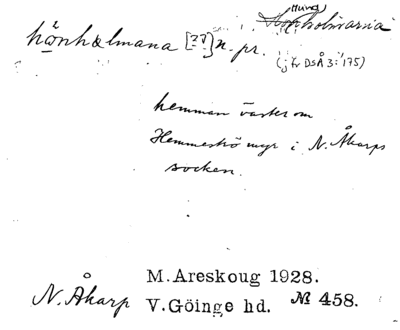 Hund
holmarna
hönhælmana [?V] n. pr.
(jfr DSÅ 3:175)
hemman väster om
Hemmeströ myr i N. Åkarps
socken.
M. Areskoug 1928.
N. Åkarp V. Göinge hd. № 458.